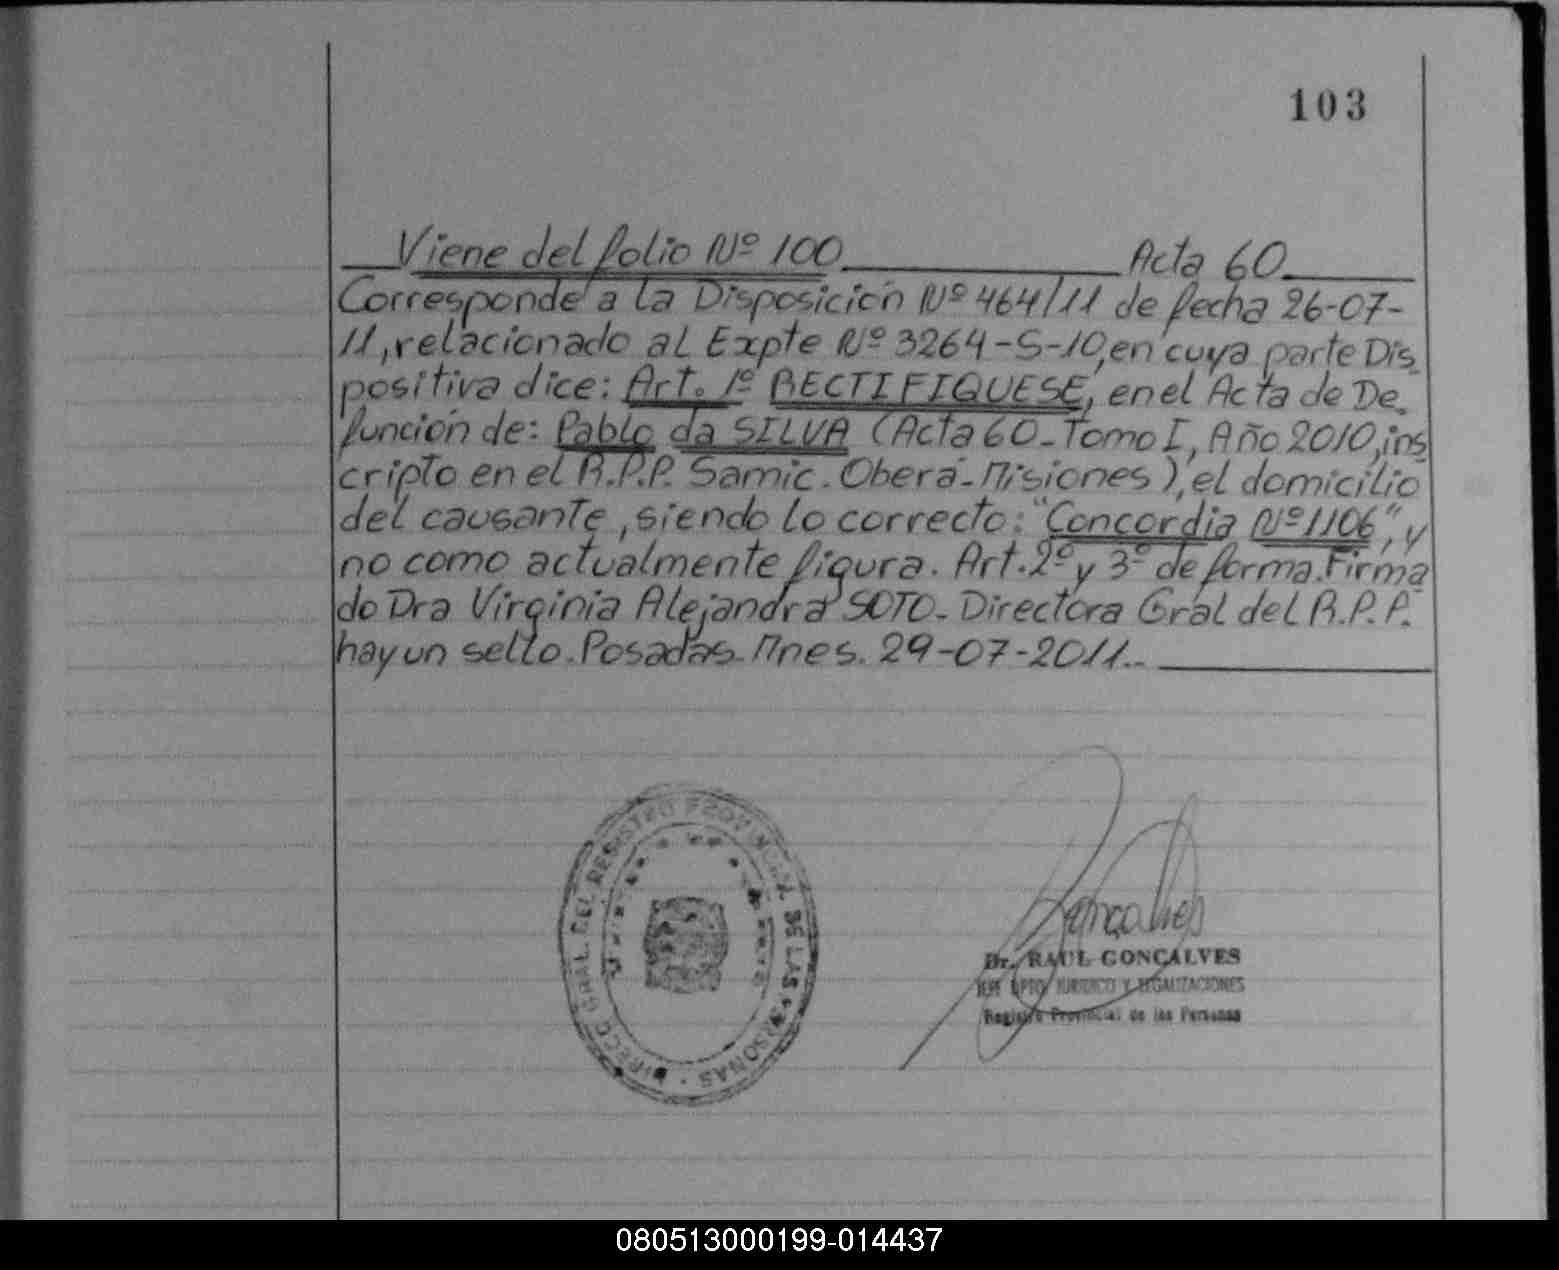 103
Viene del folio Nº 100 Acta 60
Corresponde a la Disposición Nº 464/11 de fecha 26-07-
11, relacionado al Expte Nº 3264-S-10, en cuya parte Dis
positiva dice: Art. 1º RECTIFIQUESE, en el Acta de De
función de: Pablo da SILVA (Acta 60-Tomo I, Año 2010, ins
cripto en el R.P.P. Samic. Oberá-Misiones), el domicilio
del causante, siendo lo correcto: "Concordia Nº 1106", y
no como actualmente figura. Art. 2º y 3º de forma. Firma
do Dra Virginia Alejandra SOTO-Directora Gral del R.P.P.
hay un sello. Posadas-Mnes. 29-07-2011..
DIRECC GRAL. DEL REGISTRO PROVINCIAL DE LAS PERSONAS
Goncalves
Dr. RAUL GONCALVES
JEFE DPTO. JURIDICO Y LEGALIZACIONES
Registro Provincial de las Personas
080513000199-014437